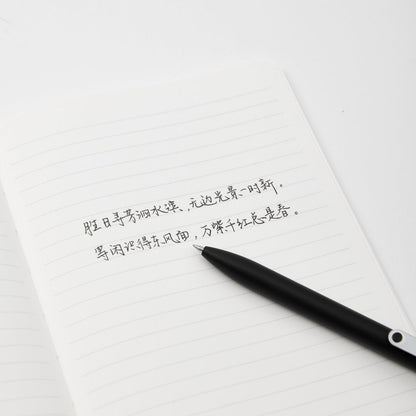 胜日寻芳泗水滨，无边光景一时新。
等闲识得东风面，万紫千红总是春。